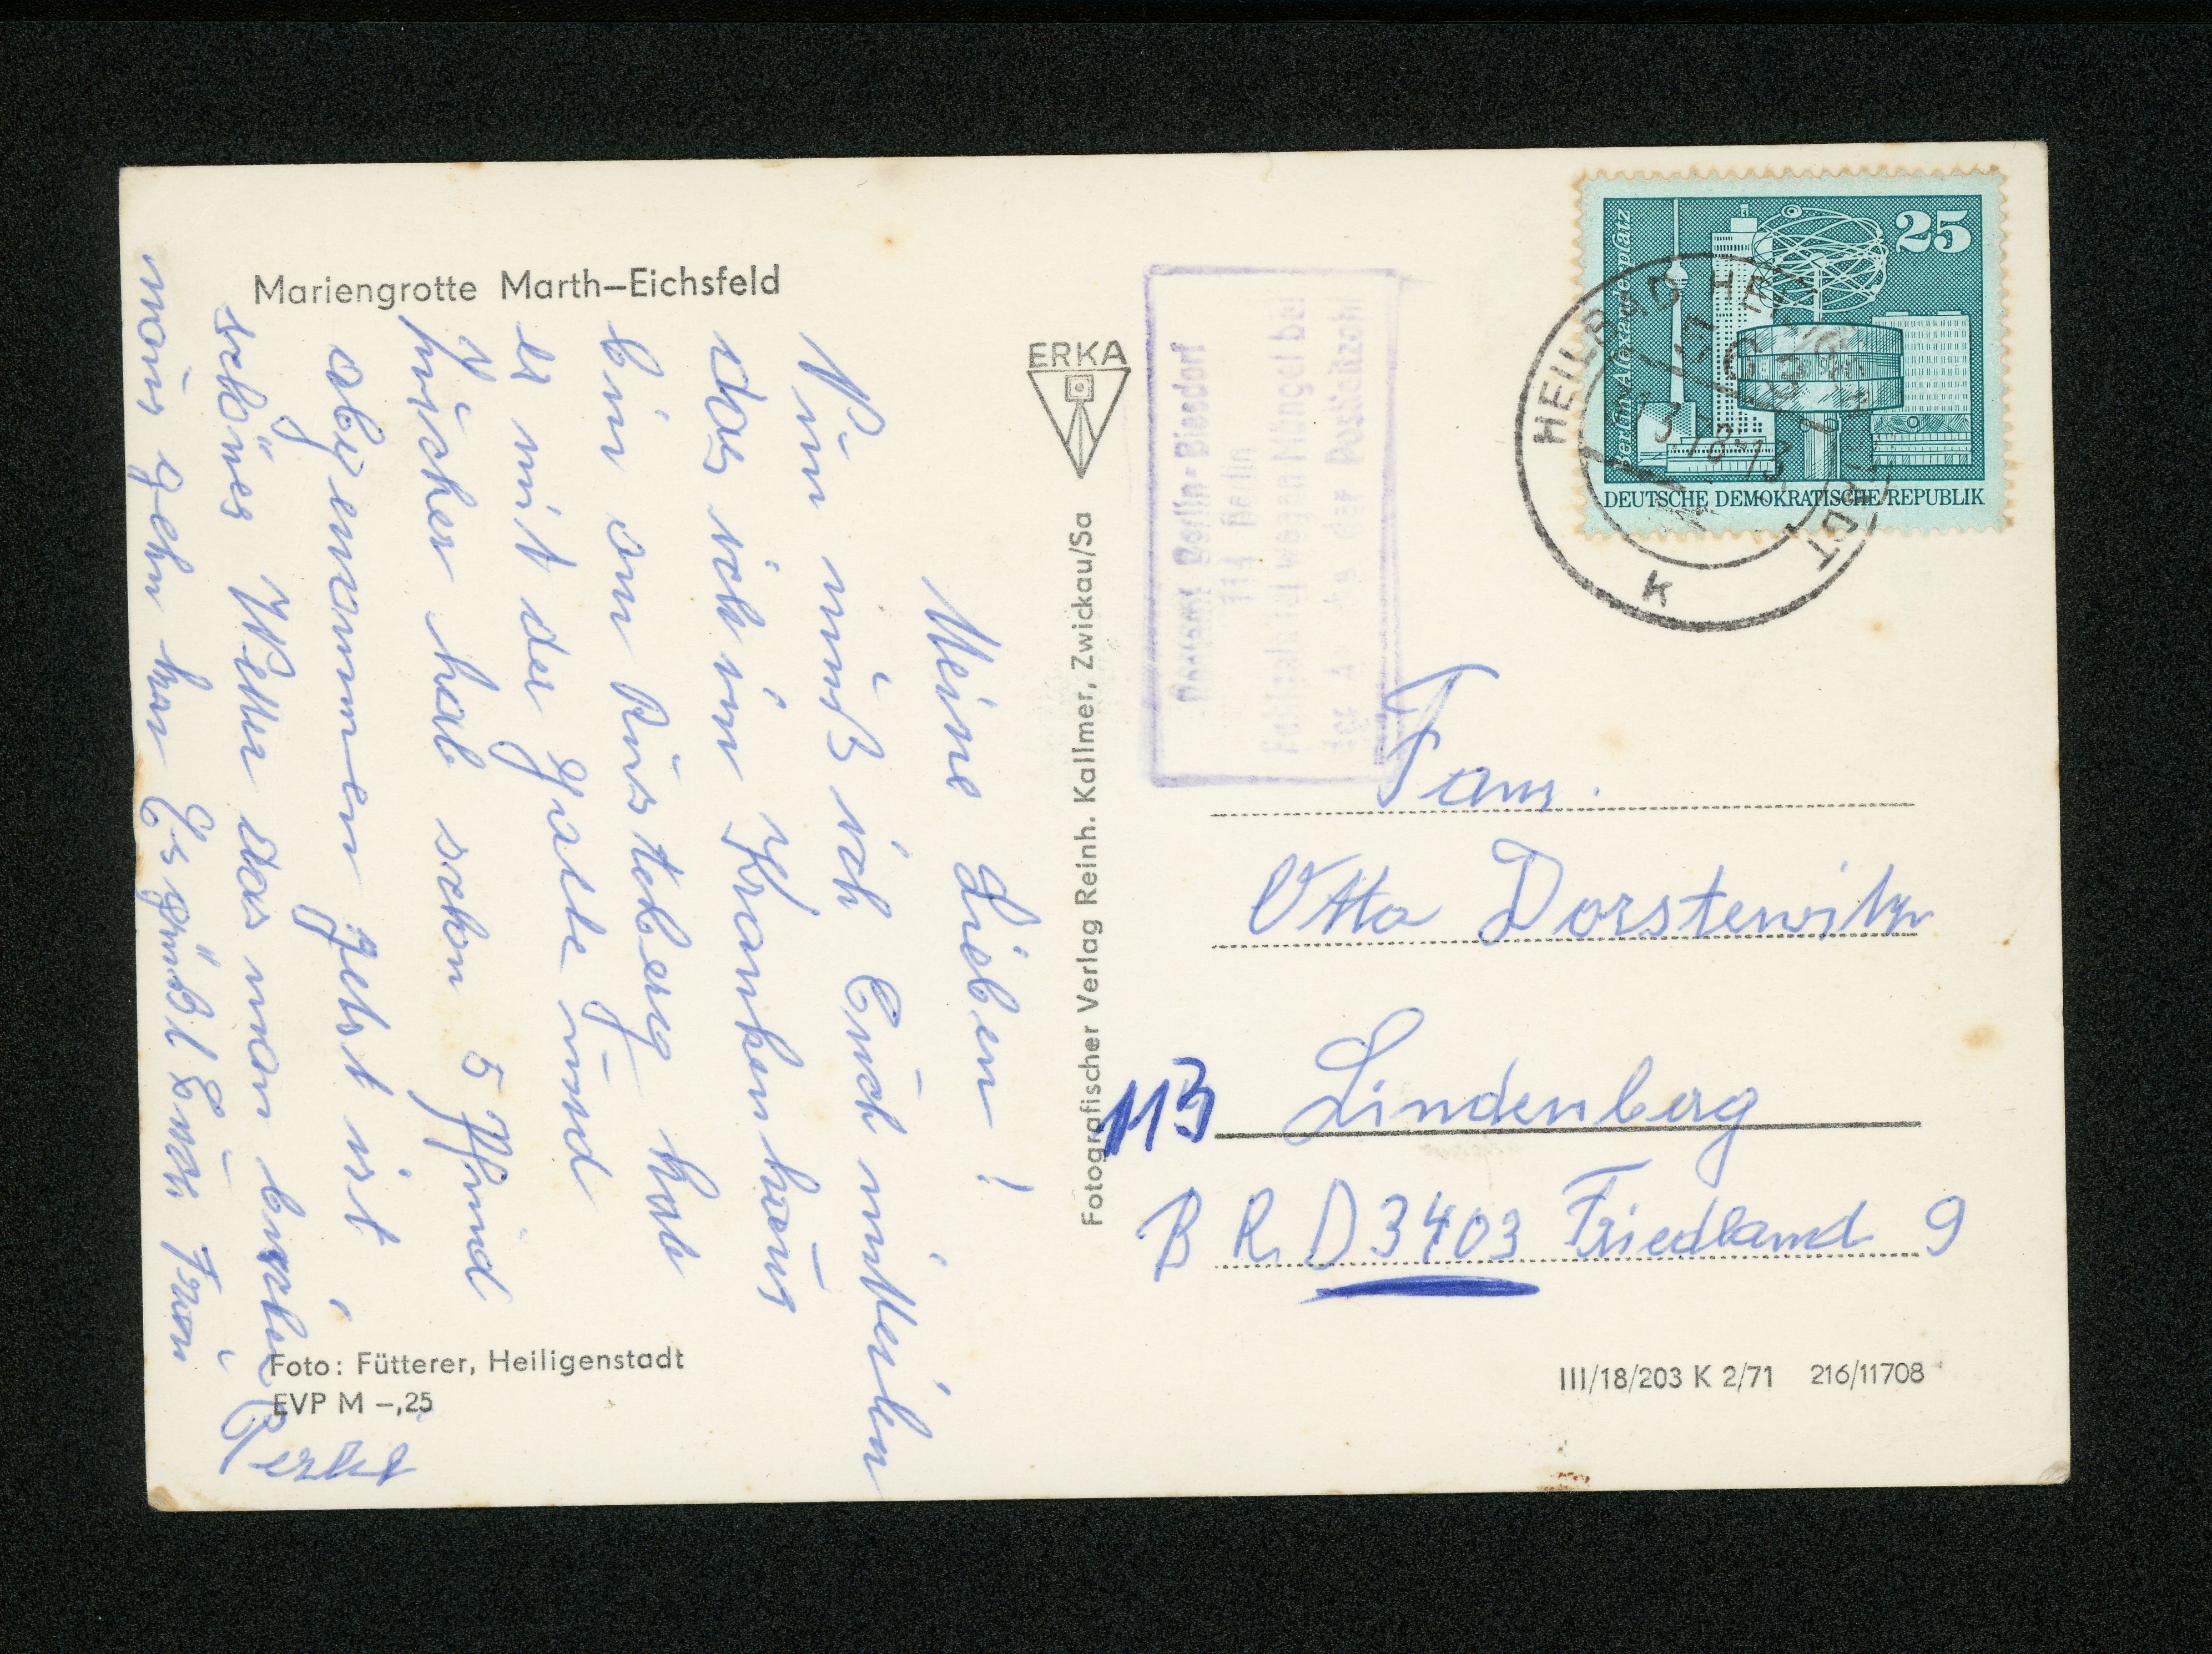 Mariengrotte Marth-Eichsfeld
Meine Lieben!
Nun muß ich Euch mitteilen
das ich im Krankenhaus
bin am Rüsteberg hab
es mit der Galle und
Zucker hab schon 5 Pfund
abgenommen Jetzt ist
schönes Wetter das man
naus gehn kan Es grüßt Euch
ERKA
Fotografischer Verlag Reinh. Kallmer, Zwickau/Sa
Foto: Fütterer, Heiligenstadt
EVP M -,25
25
Berlin-Alexanderplatz
DEUTSCHE DEMOKRATISCHE REPUBLIK
HEILBAD
K
Postamt Berlin-Biesdorf
114 Berlin
Fehlgeleitet wegen Mängel bei
der Postleitzahl
Fam.
Otto Dorstewitz
113 Lindenberg
BRD 3403 Friedland 9
III/18/203 K 2/71 216/11708